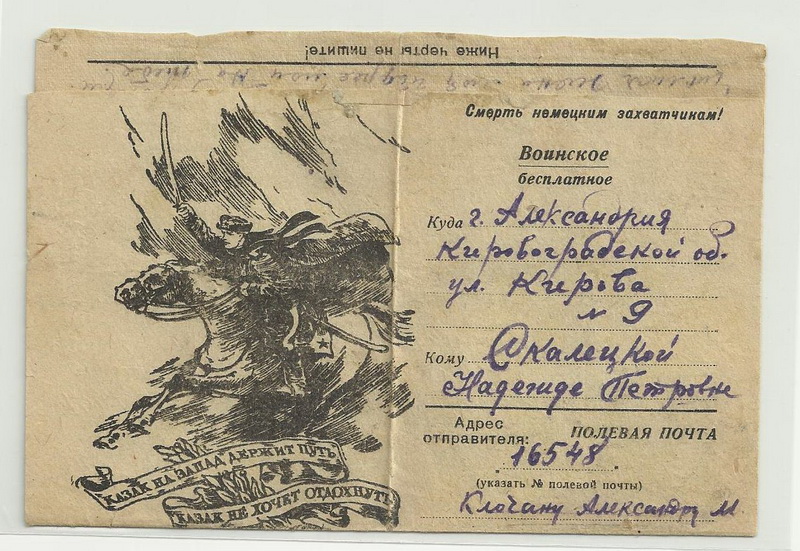 Ниже черты не пишите!
Смерть немецким захватчикам!
Воинское
бесплатное
Куда г. Александрия
Кировоградской об.
ул. Кирова
№ 9
Кому Скалецкой
Надежде Петровне
Адрес
отправителя:
ПОЛЕВАЯ ПОЧТА
16548
(указать № полевой почты)
Клочану Александр М.
КАЗАК НА ЗАПАД ДЕРЖИТ ПУТЬ
КАЗАК НЕ ХОЧЕТ ОТДОХНУТЬ